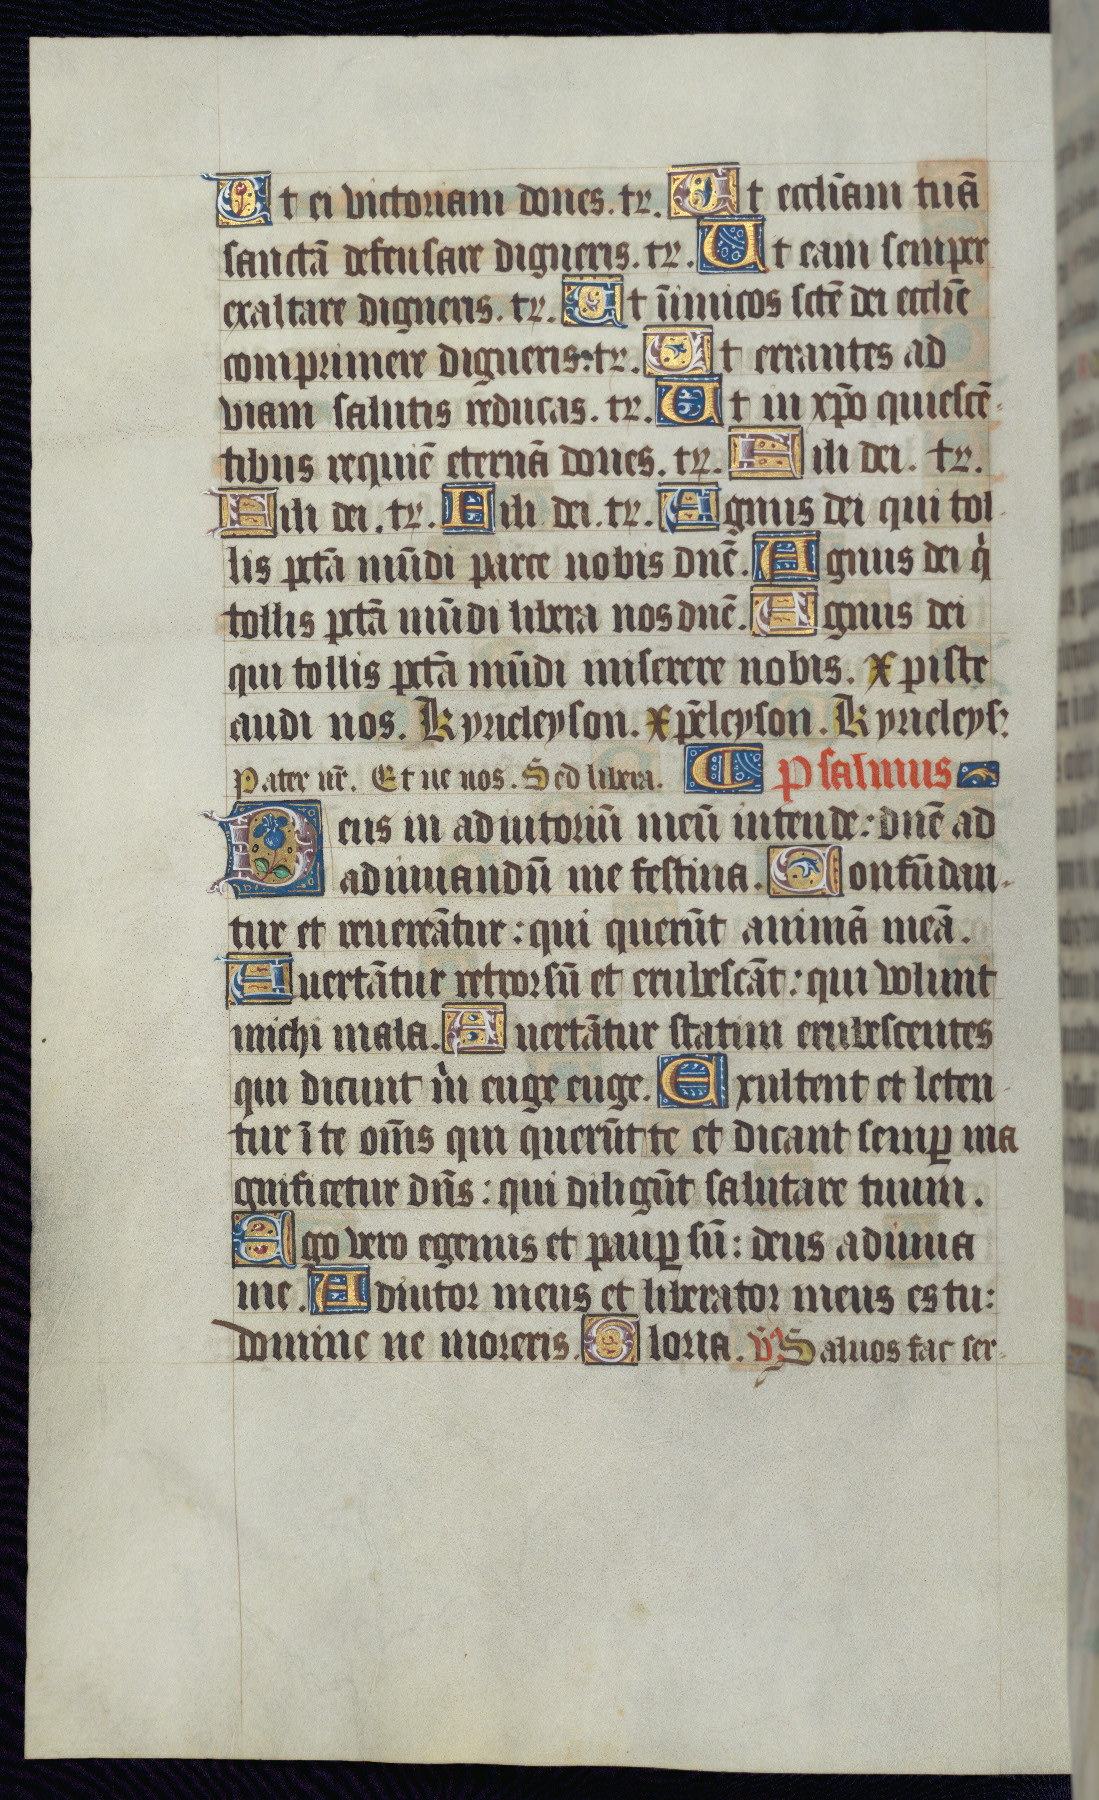 Ut ei victoriam dones. tr̄. Ut eccl̄iam tuā
sanctā defensare digneris. tr̄. Ut eam semper
exaltare digneris. tr̄. Ut īnimicos scт̄e dei eccl̄ie
comprimere digneris. tr̄. Ut errantes ad
viam salutis reducas. tr̄. Ut in xp̄o quiescē-
tibus requiē eternā dones. tr̄. Fili dei. tr̄.
Fili dei. tr̄. Fili dei. tr̄. Agnus dei qui tol
lis pctā mūdi parce nobis dnē. Agnus dei q̇
tollis pctā mūdi libera nos dnē. Agnus dei
qui tollis pctā mūdi miserere nobis. Xpiste
audi nos. Kyrieleyson. xp̄eleyson. Kyrieleys:
Pater nr̄. Et ne nos. Sed libera. Psalmus
Deus in adiutoriū meū intende: dnē ad
adiuuandū me festina. Confūdan-
tur et reuereātur: qui querūt animā meā.
Auertātur retrorsū et erubescāt: qui volunt
michi mala. Auertātur statim erubescentes
qui dicunt m̄ euge euge. Exultent et leten
tur ī te om̄s qui querūt te et dicant semꝑ ma
gnificetur dn̄s: qui diligūt salutare tuum.
Ego vero egenus et pauꝑ sū: deus adiuua
me. Adiutor meus et liberator meus es tu:
domine ne moreris. Gloria. V̄ Saluos fac ser-